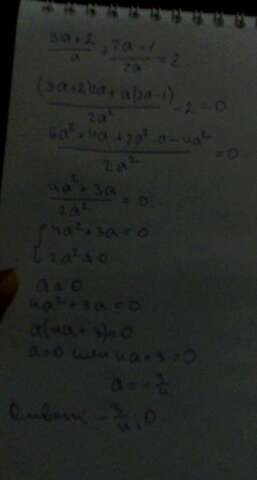 (3a+2)/a + (2a-1)/2a = 2
((3a+2)2a + a(2a-1))/2a² - 2 = 0
(6a²+4a+2a²-a-4a²)/2a² = 0
(4a²+3a)/2a² = 0
{ 4a²+3a=0
2a²≠0
a≠0
4a²+3a=0
a(4a+3)=0
a=0 или 4a+3=0
a=-3/4
Ответ: -3/4; 0